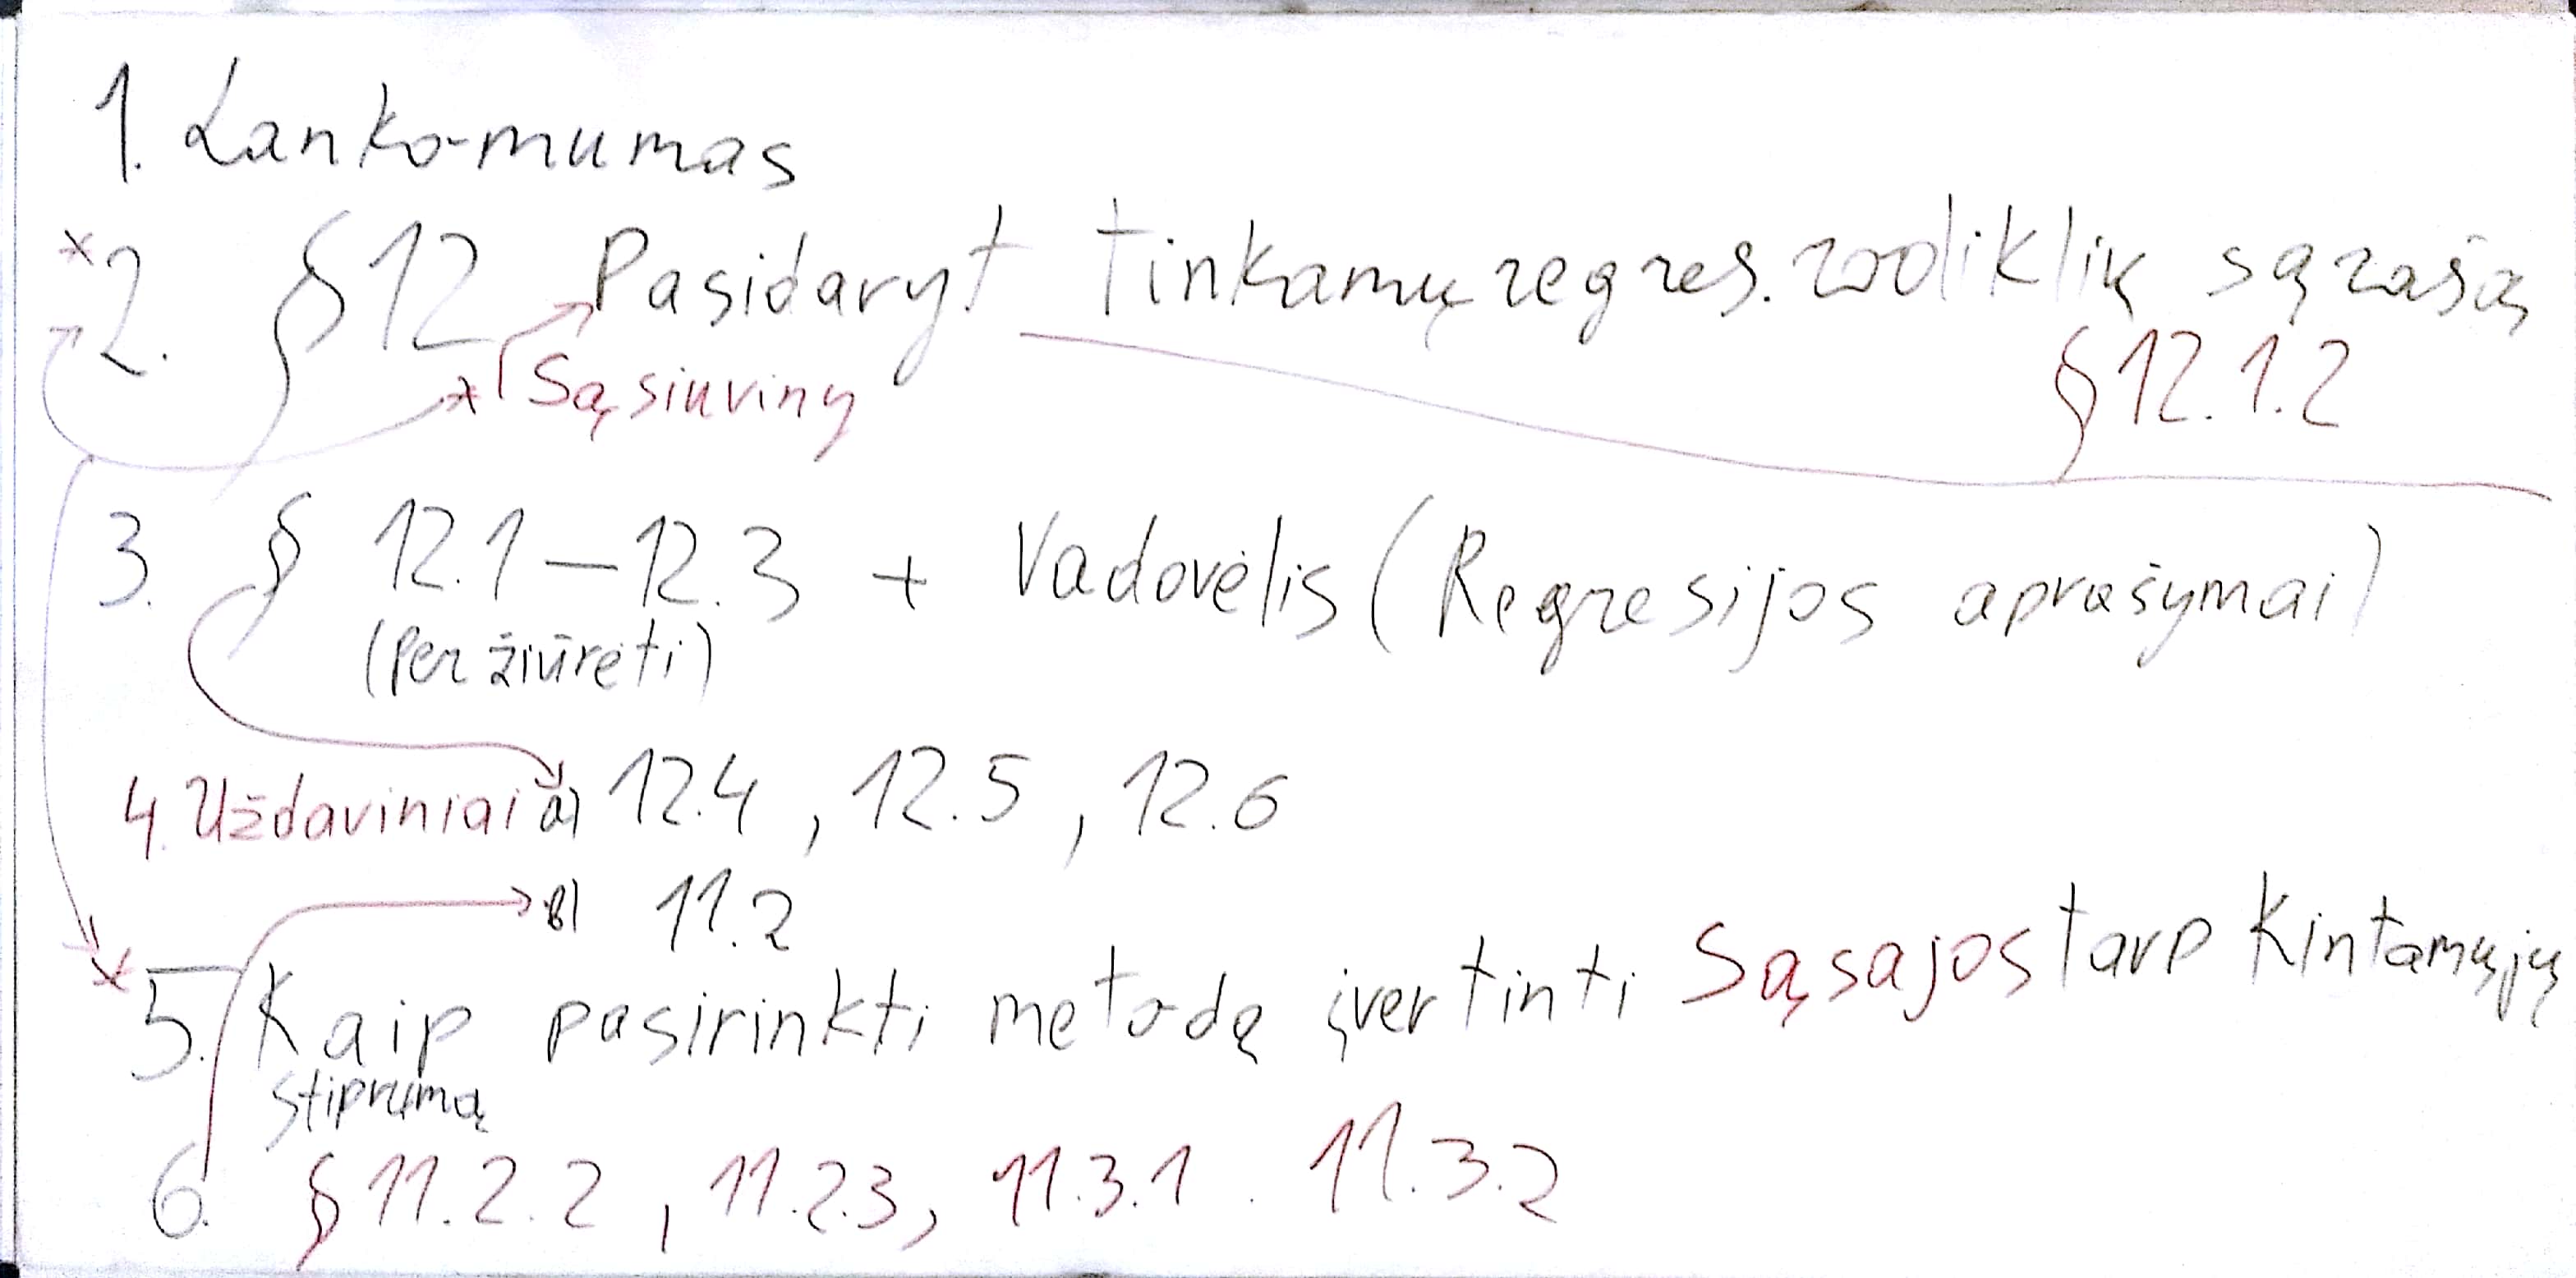 1. Lankomumas
*2. §12 Pasidaryt tinkamų regres. rodiklių sąrašą
* Sąsiuviny §12.1.2
3. § 12.1 – 12.3 + Vadovėlis (Regresijos aprašymai)
(Peržiūrėti)
4. Uždaviniai a) 12.4, 12.5, 12.6
B) 11.2
*5. Kaip pasirinkti metodą įvertinti Sąsajos tarp kintamųjų
stiprumą
6. § 11.2.2, 11.2.3, 11.3.1. 11.3.2